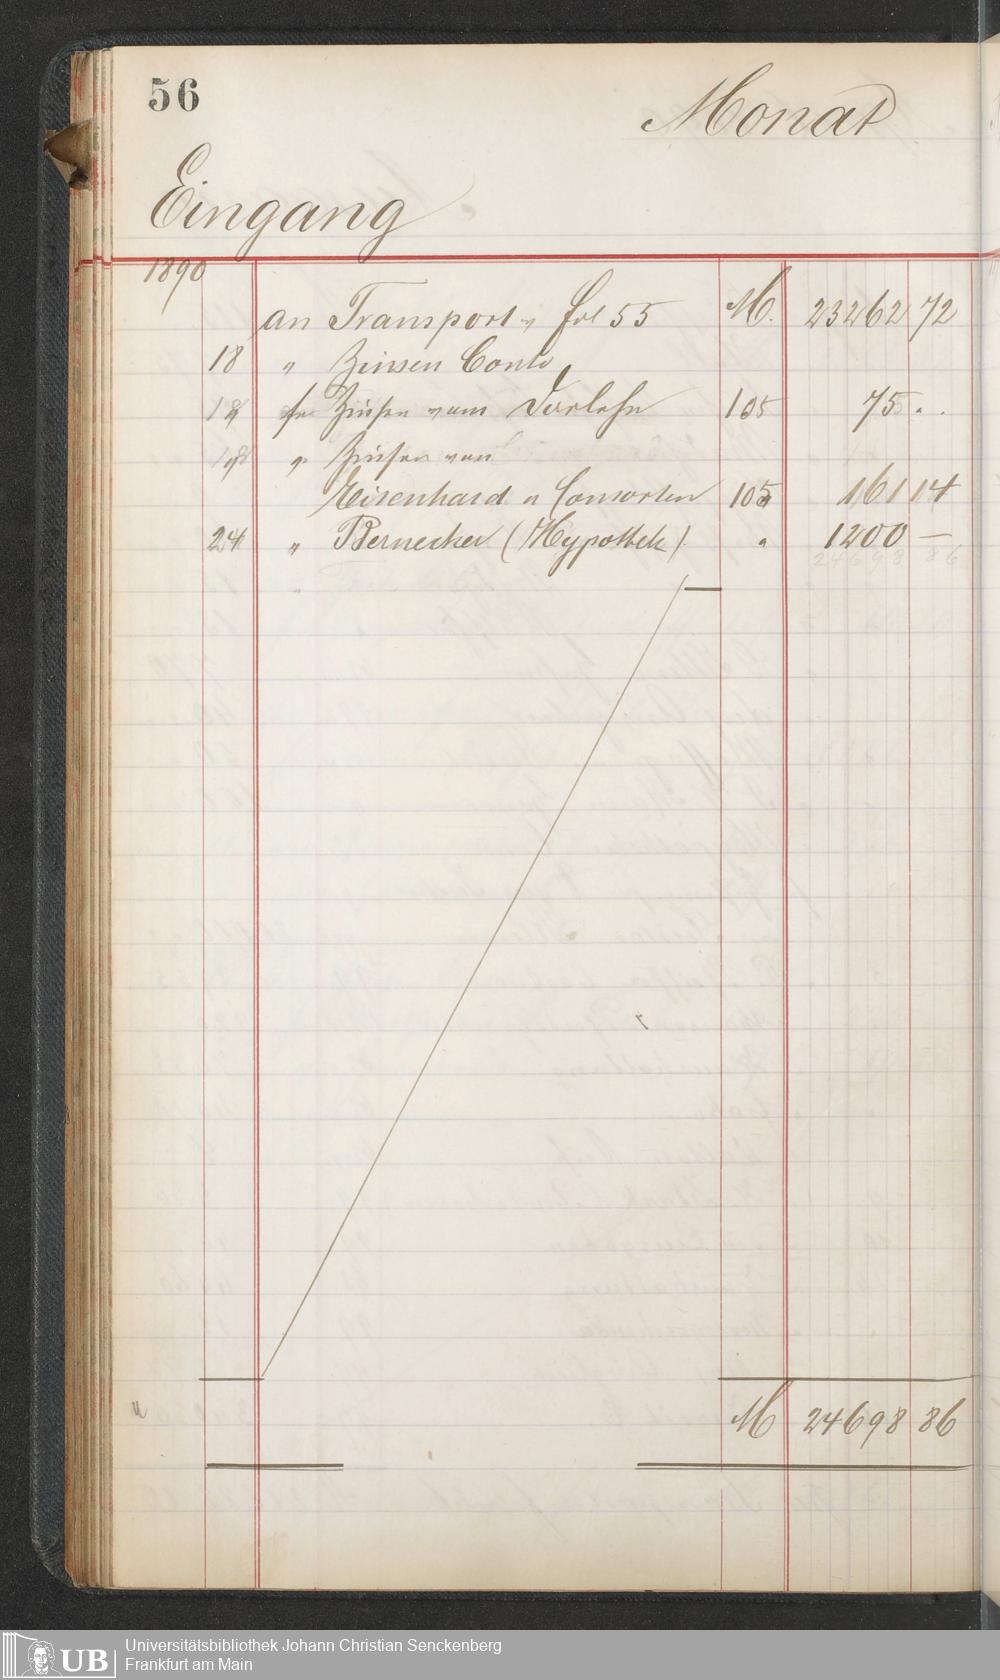 56
Monat
Eingang
1890
an Transport v. Fol 55 M. 23262 72
18 " Zinsen Conto
18 für Zinsen vom Darlehn 105 75 . .
18 " Zinsen von
Eisenhard u Consorten 105 161 14
24 " Bernecker (Hypothek) " 1200 —
24698 86
M 24698 86
UB
Universitätsbibliothek Johann Christian Senckenberg
Frankfurt am Main